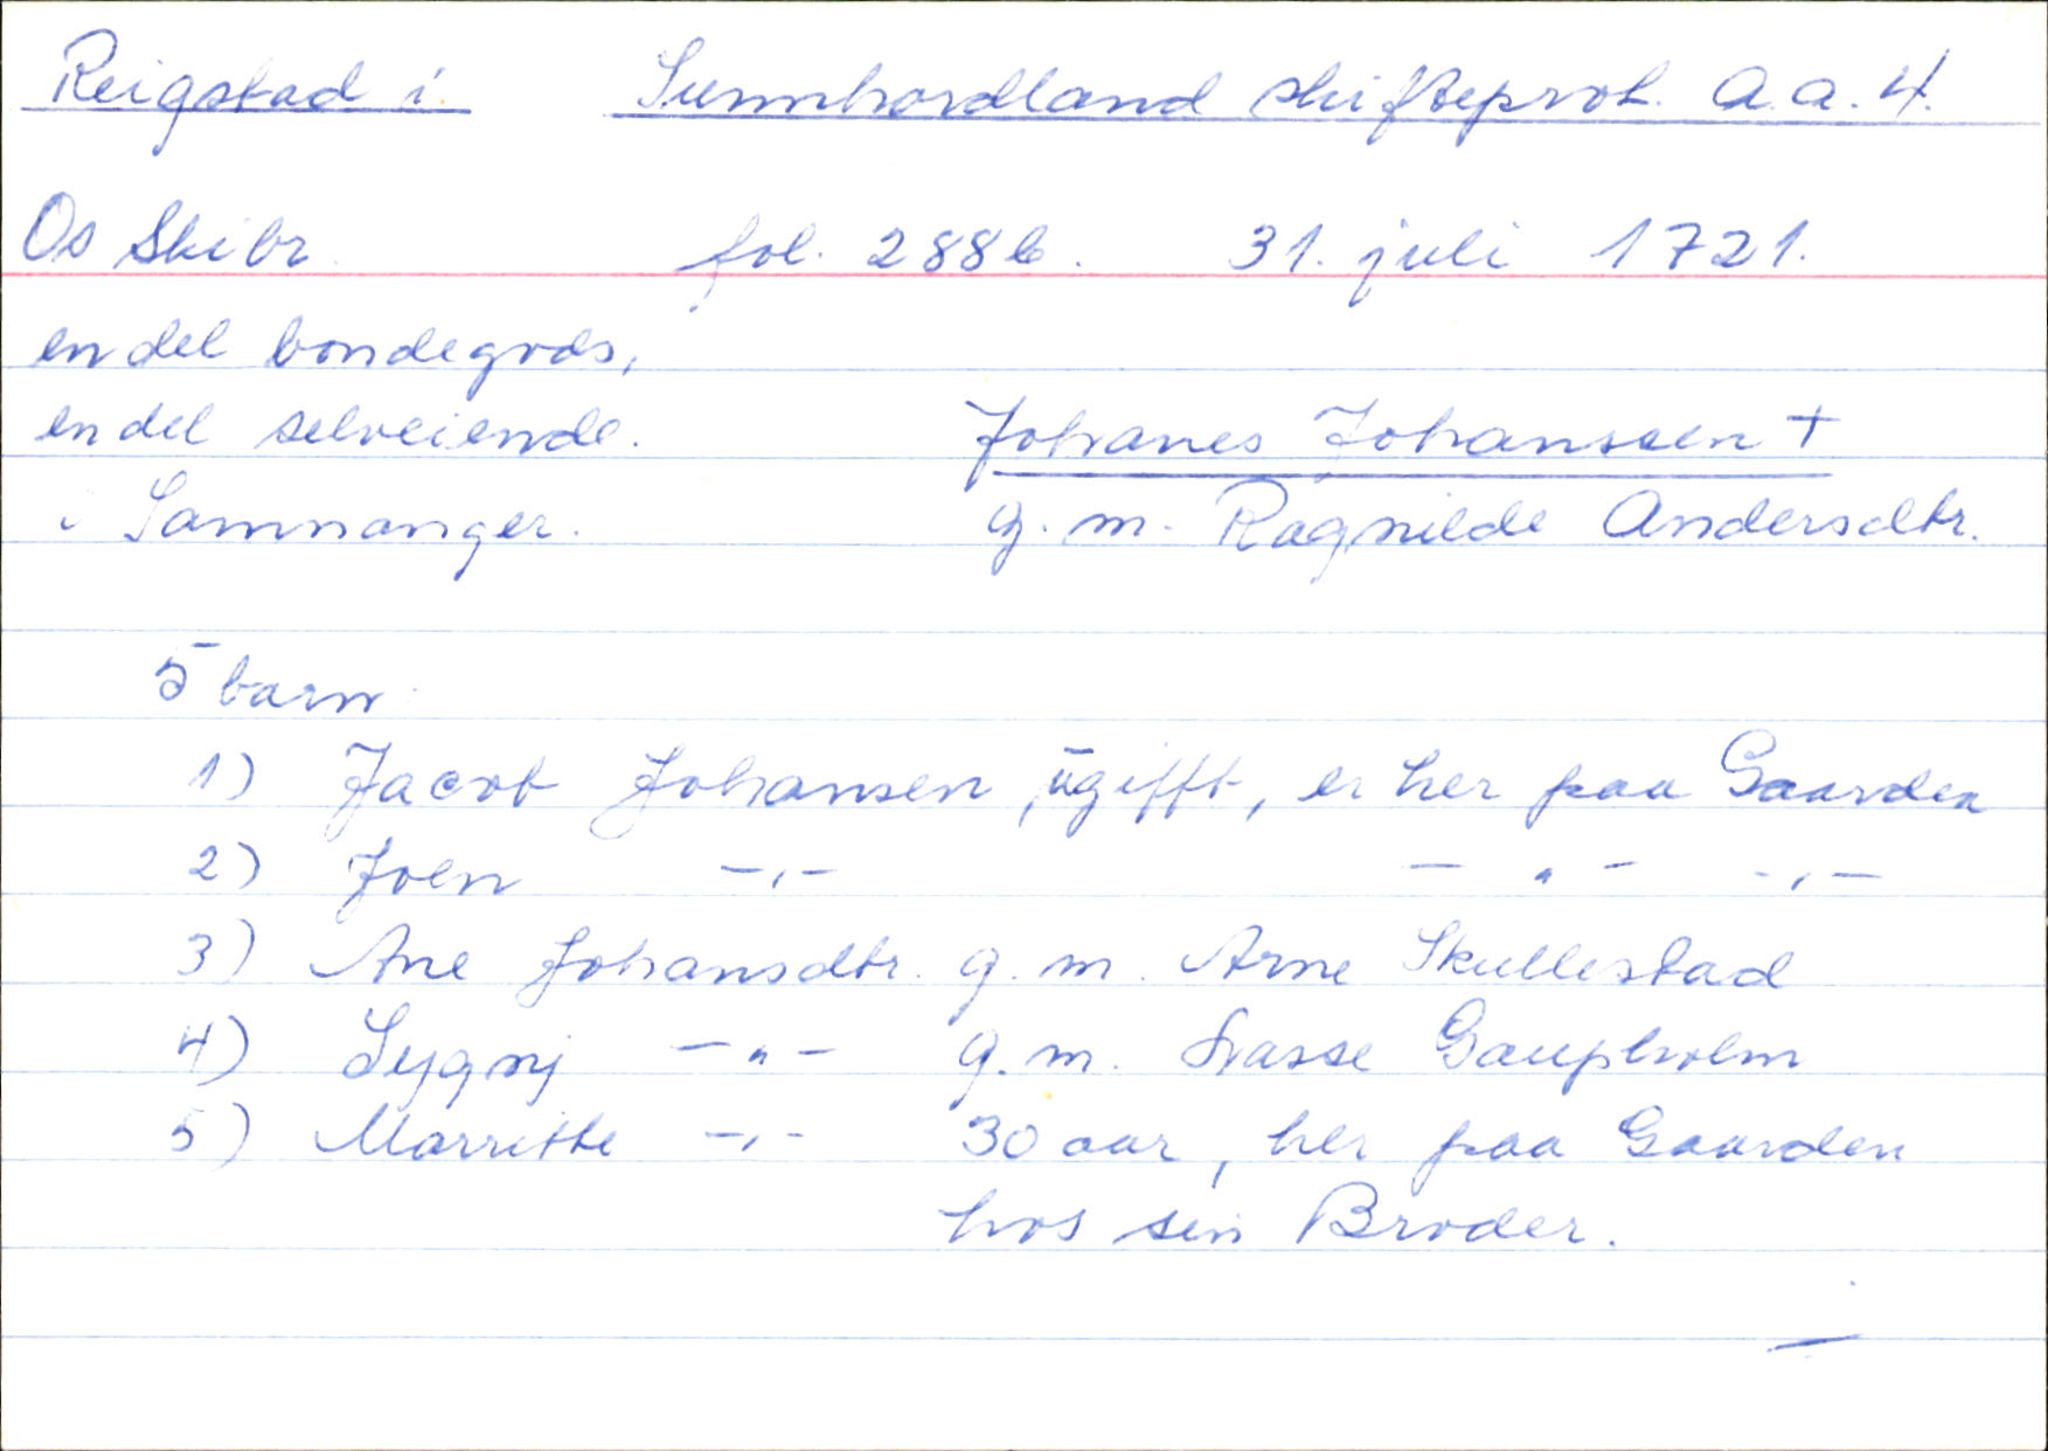 Reigstad i Sunnhordland skifteprot. a.a. 4.
Os Skibr. fol. 288b. 31. juli 1721.
en del bondegods,
en del selveiende. Johanes Johanssen +
i Samnanger. g. m. Ragnilde Andersdtr.
5 barn
1) Jacob Johansen, ūgifft, er her paa Gaarden
2) Joen -,,- - " - -,,-
3) Ane Johansdtr. g. m. Arne Skullestad
4) Sygnj - " - g. m. Lasse Gaupholm
5) Marritte -,,- 30 aar, her paa Gaarden
hos sin Broder.